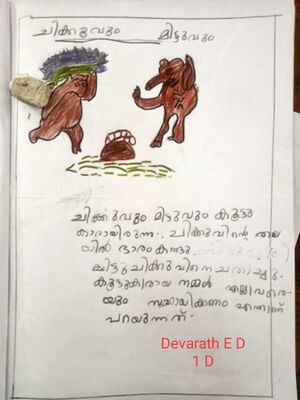 ചിക്കുവും മിട്ടുവും
ചിക്കുവും മിട്ടുവും കൂട്ടു
കാരായിരുന്നു. ചിക്കുവിന്റെ തല
യിൽ ഭാരം കണ്ടു
മിട്ടു ചിക്കുവിനെ ചതിച്ചു.
കൂട്ടുകാരായ നമ്മൾ എല്ലാവരെ
യും സഹായിക്കണം എന്നാണ്
പറയുന്നത്.
Devarath E D
1 D